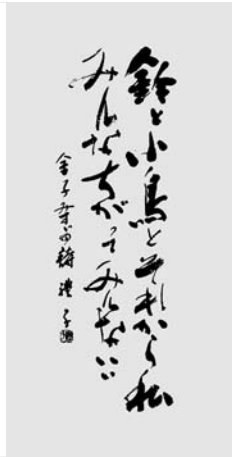 鈴と小鳥とそれから私
みんなちがってみんないい
金子みすゞ詩 禮子